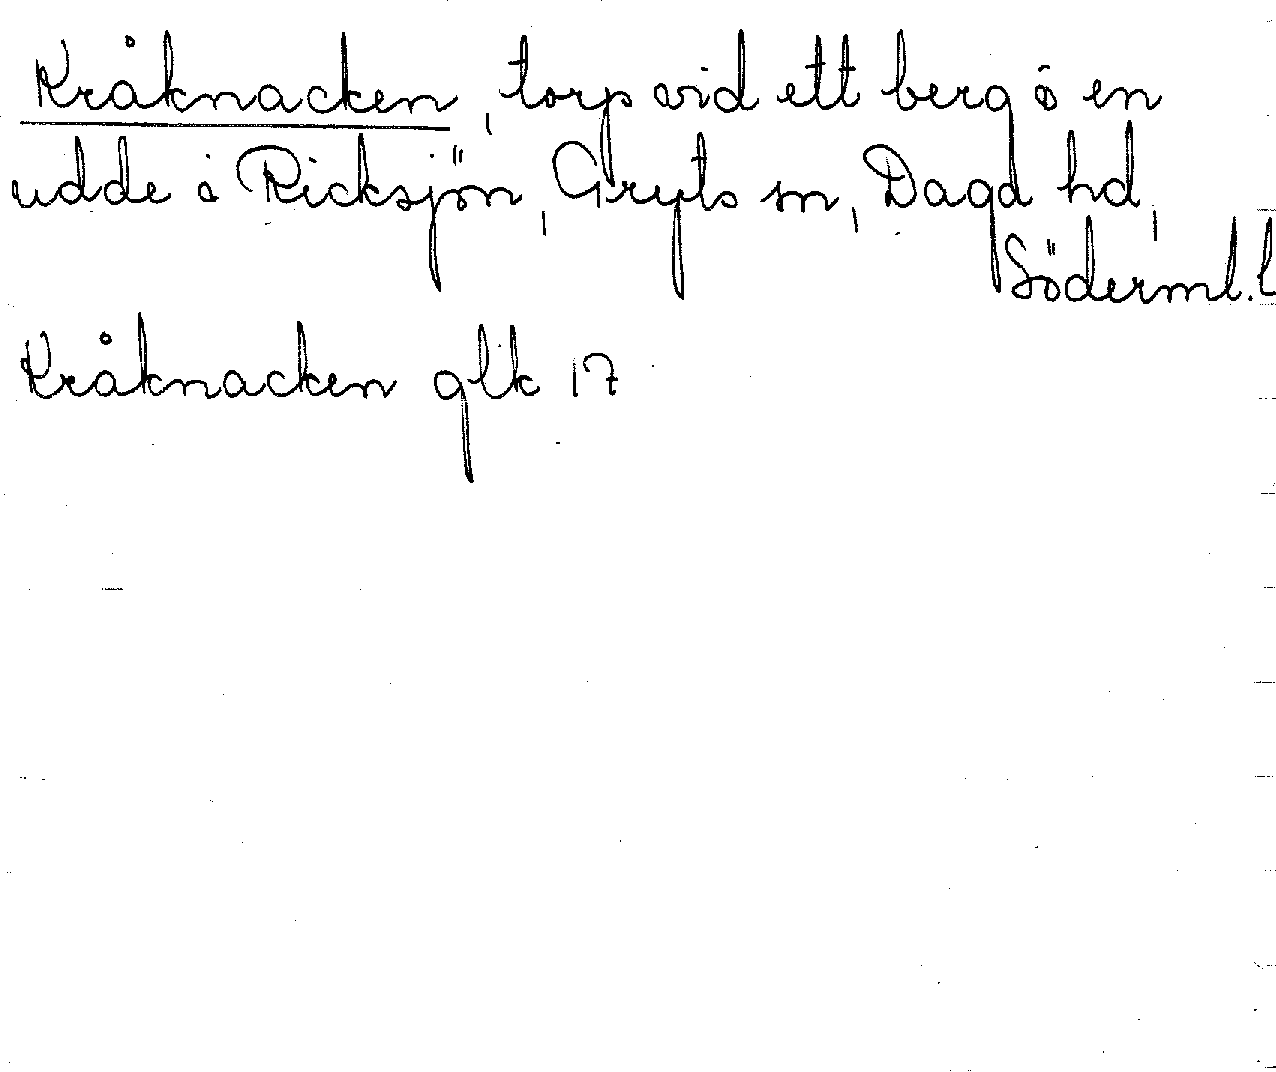 Kråknacken, torp vid ett berg å en
udde i Ricksjön, Gryts sn, Daga hd,
Söderml. l
Kråknacken glk 17